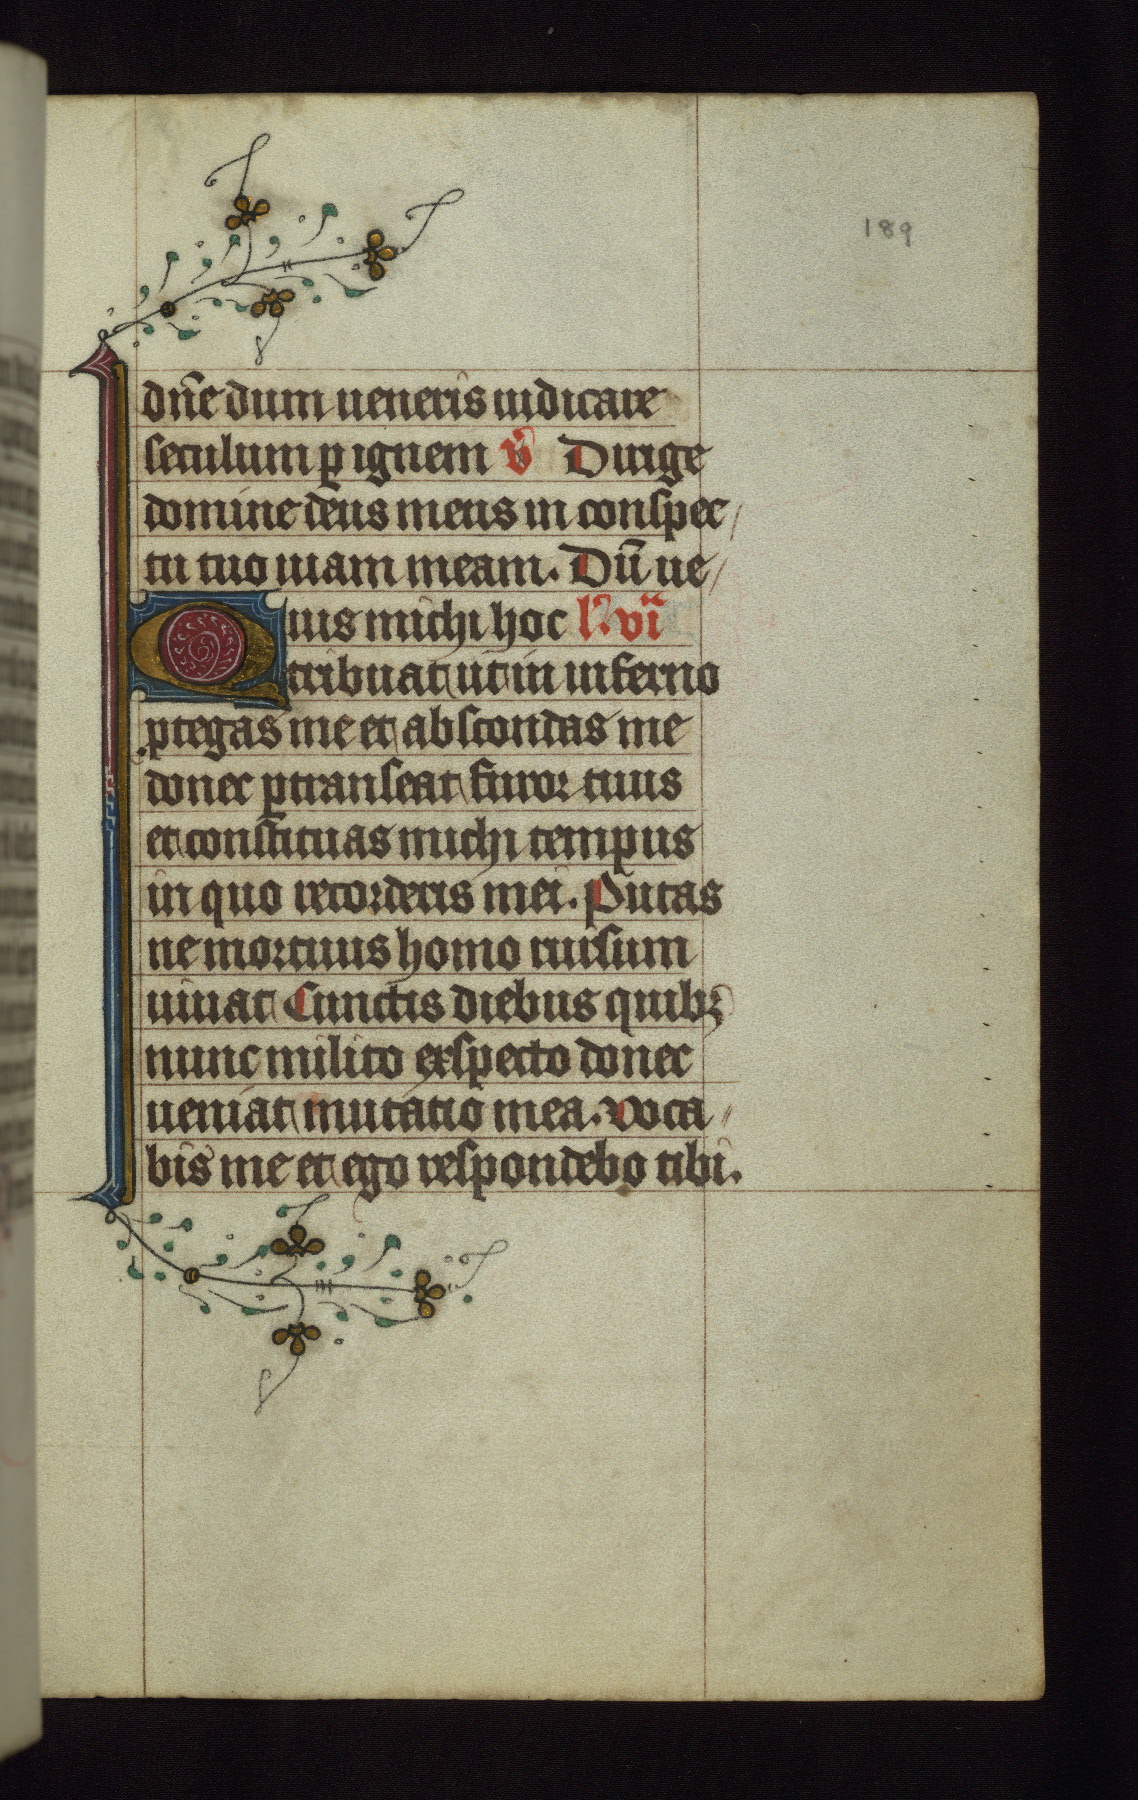 189
dn̄e dum ueneris iudicare
seculum ꝑ ignem v̄ Dirige
domine deus meus in conspec
tu tuo uiam meam. Dū ue
Quis michi hoc l'. vi
tribuat ut in inferno
ꝓtegas me et abscondas me
donec ꝑtranseat furor tuus
et constituas michi tempus
in quo recorderis mei. Putas
ne mortuus homo rursum
uiuat Cunctis diebus quibꝫ
nunc milito exspecto donec
ueniat mutatio mea. Voca
bis me et ego respondebo tibi.